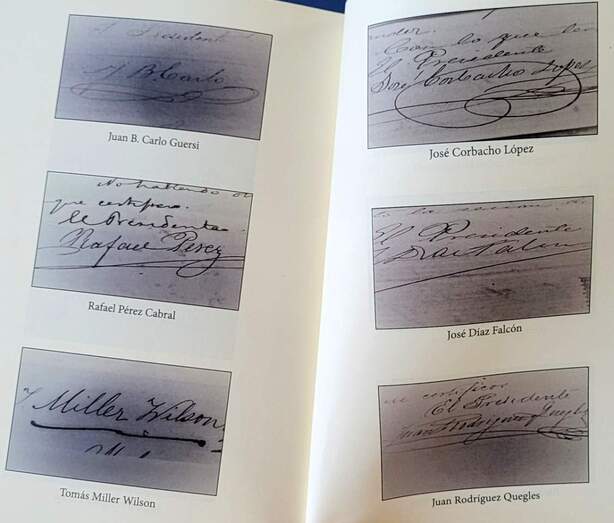 Presidente
J B. Carlo
Juan B. Carlo Guersi
No habiendo
que certifico.
El Presidente
Rafael Perez
Rafael Pérez Cabral
T Miller Wilson
Tomás Miller Wilson
Con lo que
El Presidente
José Corbacho Lopez
José Corbacho López
El Presidente
José Díaz Falcón
certifico
El Presidente
Juan Rodriguez Quegles
Juan Rodríguez Quegles